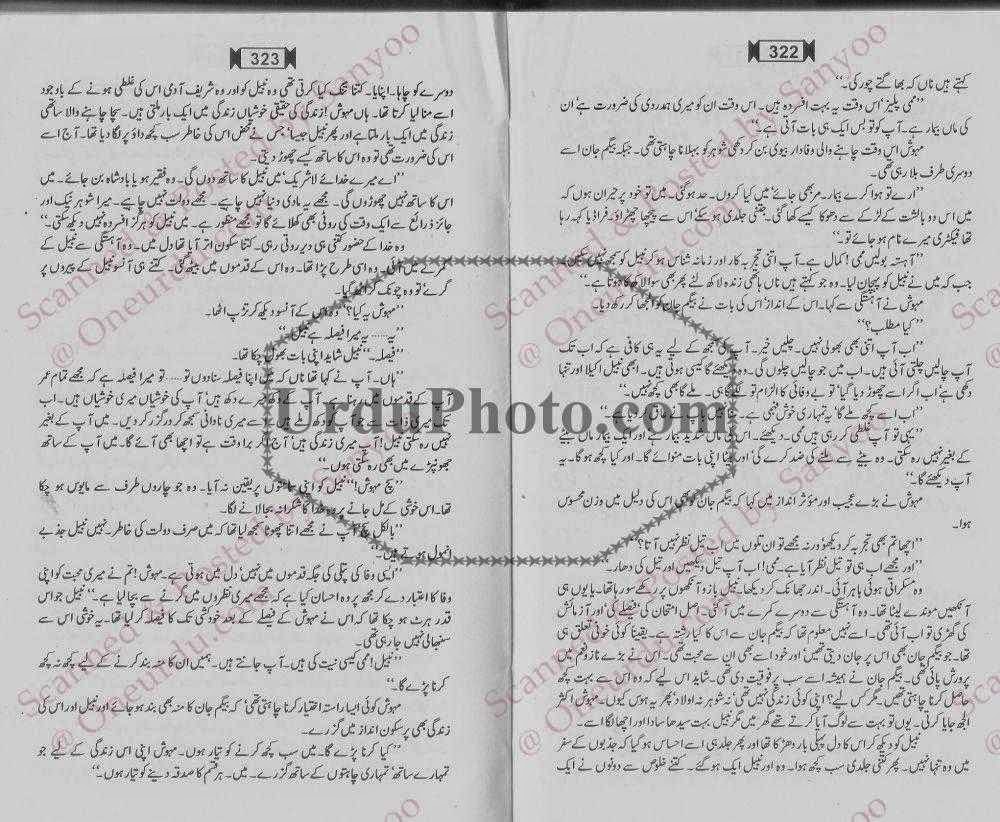 322
کہتے ہیں ناں کہ بھاگتے چور کی۔‘‘
’’ممی پلیز‘ اس وقت یہ بہت افسردہ ہیں۔ اس وقت ان کو میری ہمدردی کی ضرورت ہے‘ ان
کی ماں بیمار ہے۔ آپ کو تو بس ایک ہی بات آتی ہے۔‘‘
مہوش اس وقت چاہنے والی وفادار بیوی بن کر دکھی شوہر کو بہلانا چاہتی تھی۔ جبکہ بیگم جان اسے
دوسری طرف بلا رہی تھی۔
’’ارے تو ہوا کرے بیمار۔ مر بھی جائے‘ میں کیا کروں۔ حد ہو گئی۔ میں تو خود پر حیران ہوں کہ
میں اس دو بالشت کے لڑکے سے دھوکا کیسے کھا گئی۔ جتنی جلدی ہو سکے‘ اس سے پیچھا چھڑاؤ۔ بڑے فراڈیا کہہ رہا
تھا فیکٹری میرے نام ہو جائے تو۔‘‘
’’آہستہ بولیں ممی! کمال ہے۔ آپ اتنی تجربہ کار اور زمانہ شناس ہو کر نبیل کو سمجھ نہیں سکیں۔
جب کہ میں نے نبیل کو پہچان لیا۔ وہ جو کہتے ہیں ناں ہاتھی زندہ لاکھ کا تو مرا سوا لاکھ کا ہوتا ہے۔‘‘
مہوش نے آہستگی سے کہا۔ اس کے انداز‘ اس کی بات نے بیگم جان کو الجھا کر رکھ دیا۔
’’کیا مطلب؟‘‘
’’اب آپ اتنی بھی بھولی نہیں۔ چلیں خیر۔ آپ کی سمجھ کے لیے یہ ہی کافی ہے کہ اب تک
آپ چالیں چلتی آئی ہیں۔ اب میں جو چالیں چلوں گی۔ وہ دیکھئے گا کیسی ہوتی ہیں۔ ابھی نبیل اکیلا اور تنہا
دکھی ہے اب اگر اسے چھوڑ دیا گیا‘ تو بے وفائی کا الزام تو لگے گا ہی۔ ملے گا بھی کچھ نہیں۔‘‘
’’اب اسے کچھ ملے گا‘ یہ تمہاری خوش فہمی ہے۔
’’یہی تو آپ غلطی کر رہی ہیں ممی۔ دیکھئے۔ اس کی ماں شدید بیمار ہے اور ایک بیمار ماں بیٹے
کے بغیر نہیں رہ سکتی۔ وہ بیٹے سے ملنے کی ضد کرے گی‘ اور بیٹا اپنی بات منوائے گا۔ اور کیا کچھ ہوگا۔ یہ
آپ دیکھئے گا۔‘‘
مہوش نے بڑے عجیب اور مؤثر انداز میں کہا کہ بیگم جان کو بھی اس کی دلیل میں وزن محسوس
ہوا۔
’’اچھا تم بھی تجربہ کر دیکھو‘ ورنہ مجھے تو ان تلوں میں اب تیل نظر نہیں آتا؟‘‘
’’اور مجھے اب ہی تو تیل نظر آیا ہے۔ ممی! اب آپ تیل دیکھیں اور تیل کی دھار۔‘‘
وہ مسکراتی ہوئی باہر آئی۔ اندر جھانک کر دیکھا‘ نبیل بازو آنکھوں پر رکھے سو رہا تھا۔ یا یوں ہی
آنکھیں موندے لیٹا تھا۔ وہ آہستگی سے دوسرے کمرے میں آ گئی۔ اصل امتحان کی‘ فیصلے کی‘ اور آزمائش
کی گھڑی تو اب آئی تھی۔ اسے نہیں معلوم تھا کہ بیگم جان سے اس کا کیا رشتہ ہے۔ یقیناً کوئی خونی تعلق ہی
تھا۔ جو بیگم جان بھی اس پر جان دیتی تھیں‘ اور خود اسے بھی ان سے محبت تھی۔ اس نے بڑے ناز و نعم میں
پرورش پائی تھی۔ بیگم جان نے ہمیشہ اسے سب پر فوقیت دی تھی۔ شاید اس لیے کہ وہ اس سے بہت کچھ
حاصل کرنا چاہتی تھیں۔ مگر کس لیے؟ اپنی کوئی زندگی نہیں تھی‘ نہ شوہر نہ اولاد‘ پھر یہ ہوس کیوں۔ مہوش اکثر
الجھ جایا کرتی۔ یوں تو بہت سے لوگ آیا کرتے تھے گھر میں مگر نبیل بہت سیدھا سادا اور اچھا لگا اسے۔
نبیل کو دیکھ کر اس کا دل پہلی بار دھڑکا تھا اور پھر جلد ہی اسے احساس ہو گیا کہ جذبوں کے سفر
میں وہ تنہا نہیں۔ پھر کتنی جلدی سب کچھ ہوا۔ وہ اور نبیل ایک ہو گئے۔ کتنے خلوص سے دونوں نے ایک
323
دوسرے کو چاہا۔ اپنایا۔ کتنا تنگ کیا کرتی تھی وہ نبیل کو اور وہ شریف آدمی اس کی غلطی ہونے کے باوجود
اسے منا لیا کرتا تھا۔ ہاں مہوش! زندگی کی حقیقی خوشیاں زندگی میں ایک بار ملتی ہیں۔ سچا چاہنے والا ساتھی
زندگی میں ایک بار ملتا ہے اور پھر نبیل جیسا‘ جس نے محض اس کی خاطر سب کچھ داؤ پر لگا دیا تھا۔ آج اسے
اس کی ضرورت تھی تو وہ اس کا ساتھ کیسے چھوڑ دیتی۔
’’اے میرے خدائے لاشریک‘ میں نبیل کا ساتھ دوں گی۔ وہ فقیر ہو یا بادشاہ بن جائے۔ میں
اس کا ساتھ نہیں چھوڑوں گی۔ مجھے یہ مادی دنیا نہیں چاہئے۔ مجھے دولت نہیں چاہئے۔ میرا شوہر نیک اور
جائز ذرائع سے ایک وقت کی روٹی بھی کھلائے گا تو مجھے منظور ہے۔ میں نبیل کو ہرگز افسردہ نہیں دیکھ سکتی۔‘‘
وہ خدا کے حضور کتنی ہی دیر روتی رہی۔ کتنا سکون اتر آیا تھا دل میں۔ وہ آہستگی سے نبیل کے
کمرے میں آئی۔ وہ اسی طرح پڑا تھا۔ وہ اس کے قدموں میں بیٹھ گئی۔ کتنے ہی آنسو نبیل کے پیروں پر
گرے‘ تو وہ چونک کر اٹھ گیا۔
’’مہوش یہ کیا؟‘‘ وہ اس کے آنسو دیکھ کر تڑپ اٹھا۔
’’یہ...... یہ میرا فیصلہ ہے نبیل۔‘‘
’’فیصلہ۔‘‘ نبیل شاید اپنی بات بھول چکا تھا۔
’’ہاں۔ آپ نے کہا تھا ناں کہ میں اپنا فیصلہ سنا دوں تو...... تو میرا فیصلہ ہے کہ مجھے تمام عمر
آپ کے قدموں میں رہنا ہے۔ آپ کے دکھ میرے دکھ ہیں‘ آپ کی خوشیاں میری خوشیاں ہیں۔ اب
میری نادانی سمجھ کر درگزر کر دیں۔ میں آپ کے بغیر
نہیں رہ سکتی نبیل! آپ میری زندگی ہیں‘ آج اگر برا وقت ہے تو اچھا بھی آئے گا۔ میں آپ کے ساتھ
جھونپڑے میں بھی رہ سکتی ہوں۔‘‘
’’سچ مہوش!‘‘ نبیل کو اپنی سماعتوں پر یقین نہ آیا۔ وہ جو چاروں طرف سے مایوس ہو چکا
تھا۔ اس خوشی کے مل جانے پر وہ خدا کا شکرانہ بجا لانے لگا۔
’’بالکل سچ آپ نے مجھے اتنا چھوٹا سمجھ لیا تھا کہ میں صرف دولت کی خاطر۔ نہیں نبیل جذبے
انمول ہوتے ہیں۔‘‘
’’ایسی وفا کی پتلی کی جگہ قدموں میں نہیں‘ دل میں ہوتی ہے۔ مہوش! تم نے میری محبت کو اپنی
وفا کا اعتبار دے کر مجھ پر وہ احسان کیا ہے کہ مجھے میری نظروں میں گرنے سے بچا لیا ہے۔‘‘ نبیل جو اس
قدر ہرٹ ہو چکا تھا کہ اس نے مہوش کے فیصلے کے بعد خودکشی تک کا فیصلہ کر لیا تھا۔ یہ خوشی اس سے
سنبھالی نہیں جا رہی تھی۔
’’نبیل! ممی کیسی نیت کی ہیں۔ آپ جانتے ہیں۔ ہمیں ان کا منہ بند کرنے کے لیے کچھ نہ کچھ
کرنا پڑے گا۔‘‘
مہوش کوئی ایسا راستہ اختیار کرنا چاہتی تھی‘ کہ بیگم جان کا منہ بھی بند ہو جائے اور نبیل اور اس کی
زندگی بھی پرسکون انداز میں گزرے۔
’’کیا کرنا پڑے گا۔ میں سب کچھ کرنے کو تیار ہوں۔ مہوش اپنی اس زندگی کے لیے جو
تمہارے ساتھ‘ تمہاری چاہتوں کے ساتھ گزرے۔ میں۔ ہر قسم کا صدقہ دینے کو تیار ہوں۔‘‘
UrduPhoto.com
Scanned & Posted by Sanyoo
@ Oneurdu.com